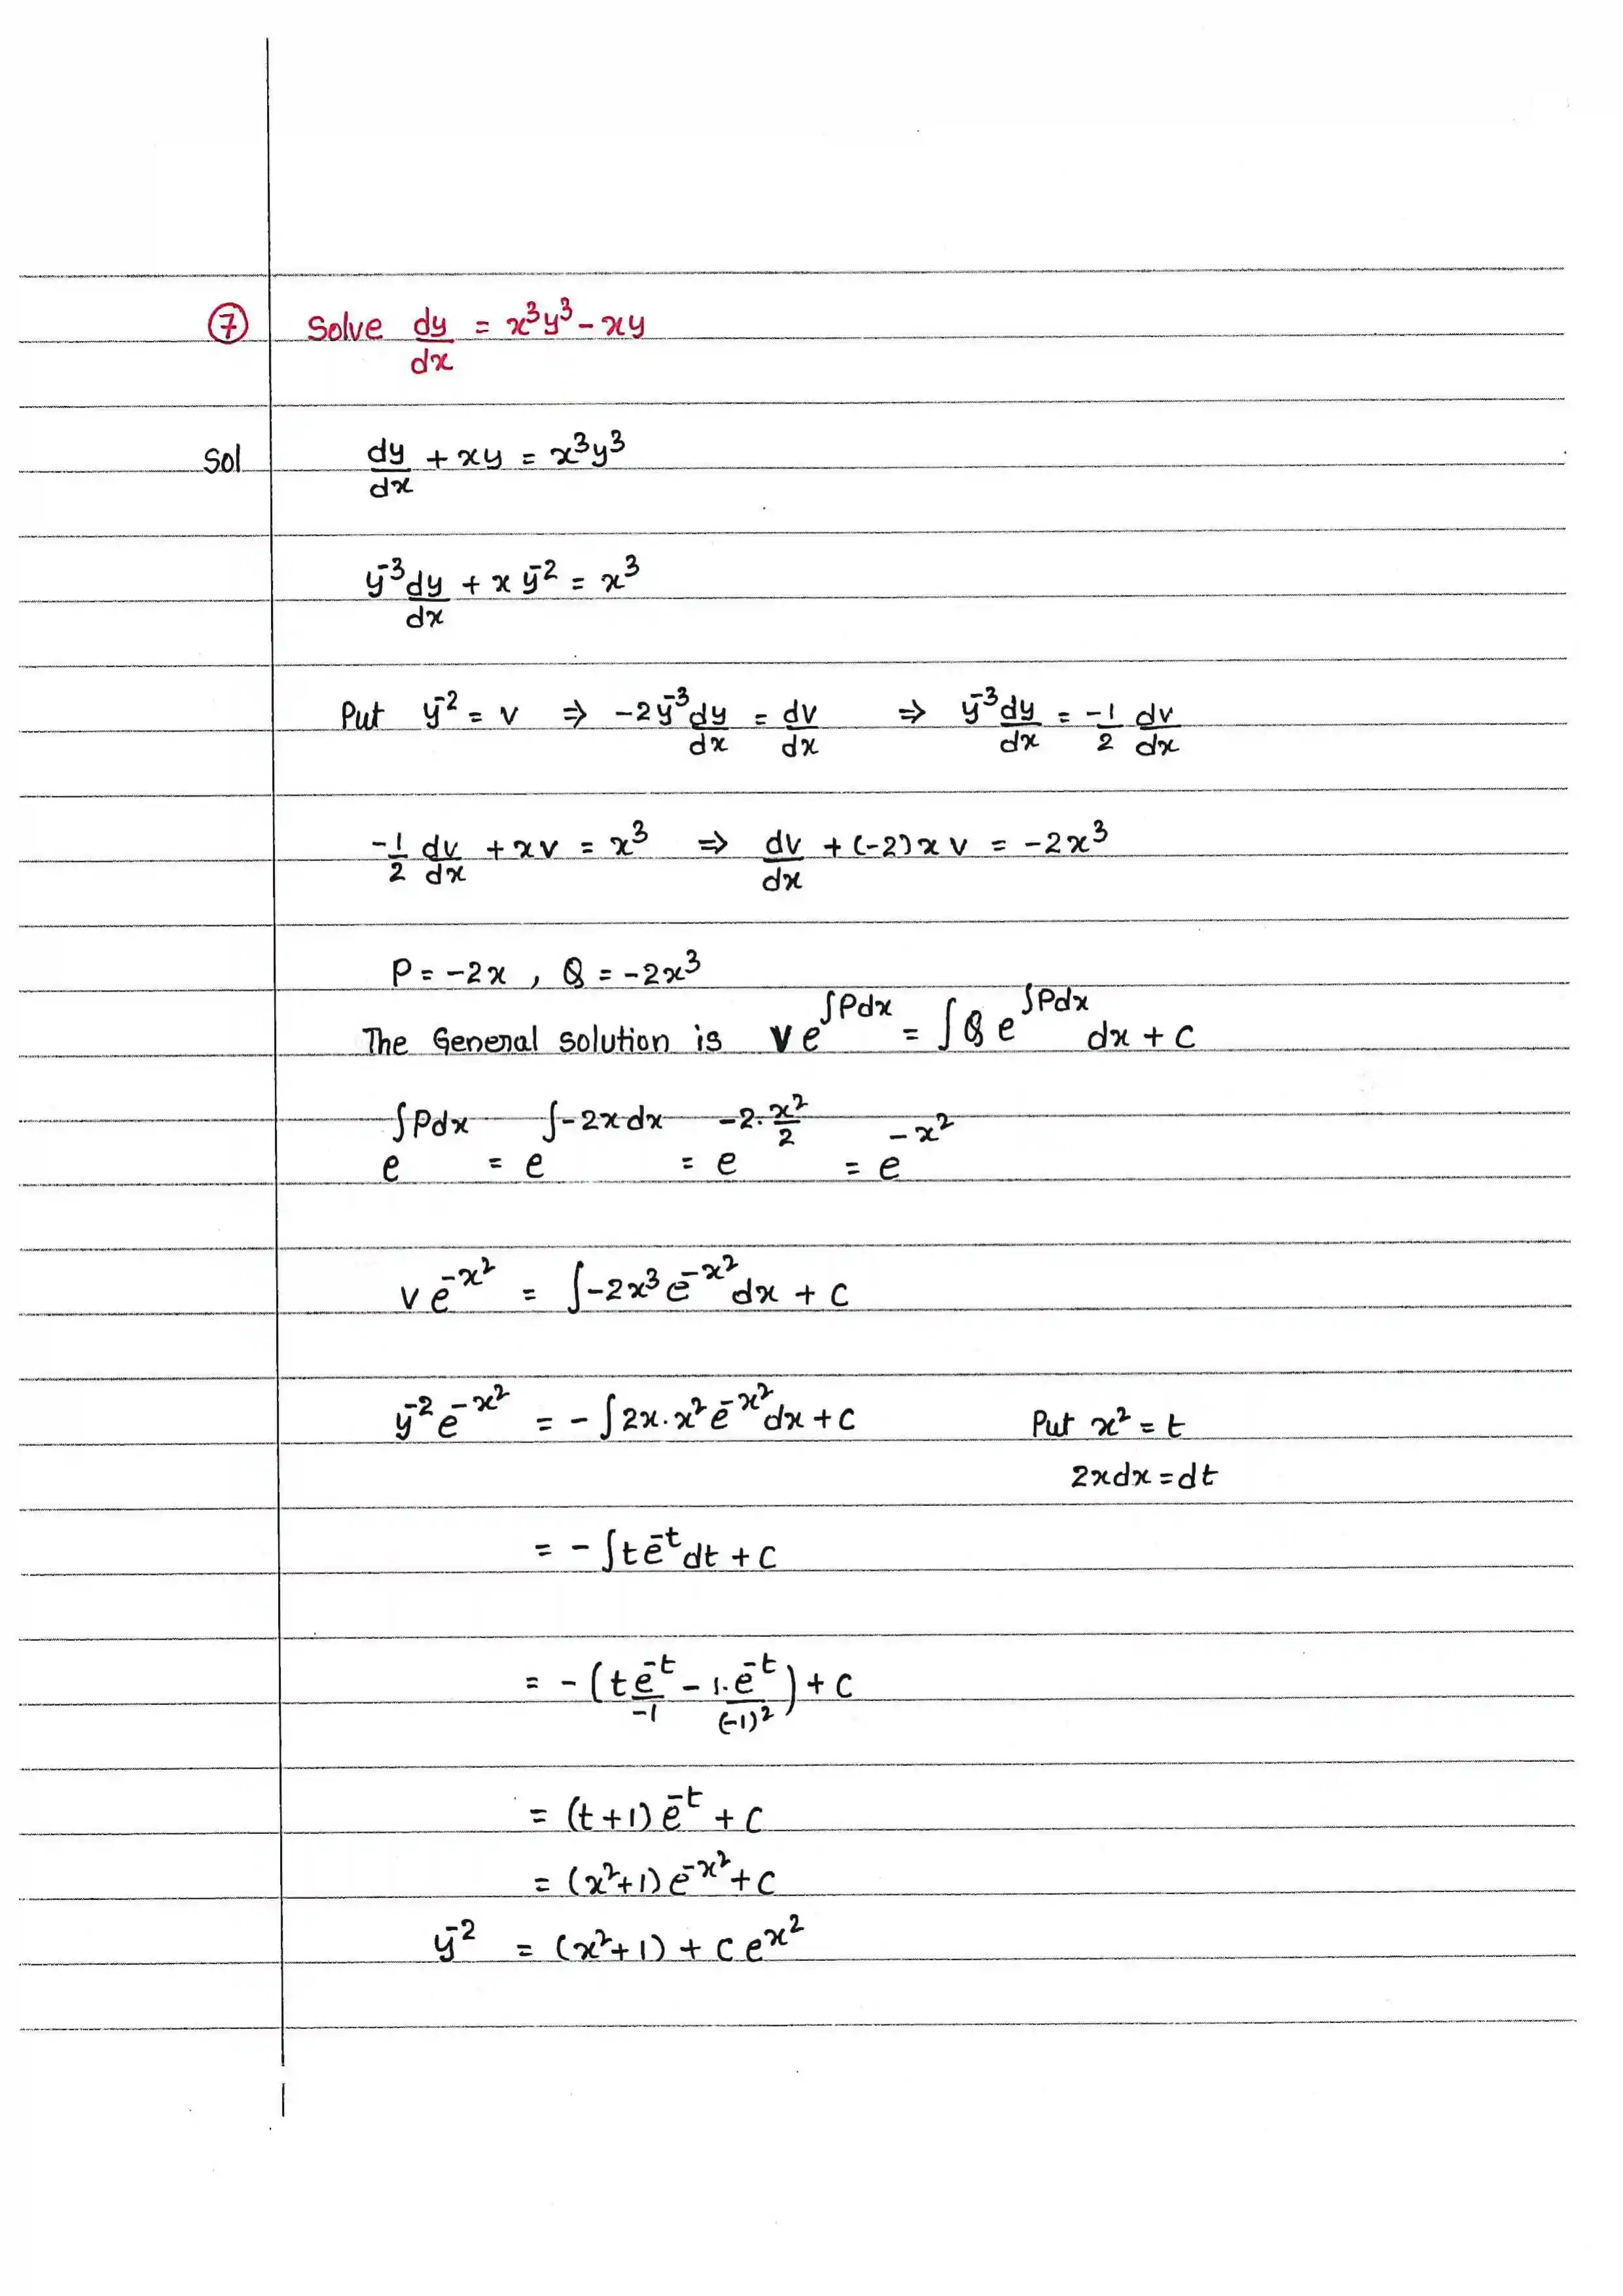 ⑦ Solve dy/dx = x³y³ - xy
Sol dy/dx + xy = x³y³
y⁻³ dy/dx + x y⁻² = x³
Put y⁻² = v ⇒ -2y⁻³ dy/dx = dv/dx ⇒ y⁻³ dy/dx = -1/2 dv/dx
-1/2 dv/dx + xv = x³ ⇒ dv/dx + (-2)xv = -2x³
P = -2x , Q = -2x³
The General solution is v e^∫Pdx = ∫Q e^∫Pdx dx + c
e^∫Pdx = e^∫-2xdx = e^(-2·x²/2) = e^-x²
v e^-x² = ∫-2x³ e^-x² dx + c
y⁻² e^-x² = -∫2x·x² e^-x² dx + c Put x² = t
2xdx = dt
= -∫t e^-t dt + c
= -(t e^-t/-1 - 1·e^-t/(-1)²) + c
= (t+1) e^-t + c
= (x²+1) e^-x² + c
y⁻² = (x²+1) + c e^x²